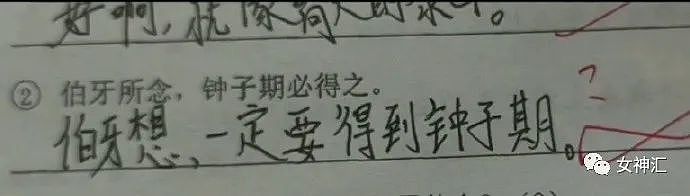 好啊，就像
② 伯牙所念，钟子期必得之。
伯牙想，一定要得到钟子期。
?
女神汇